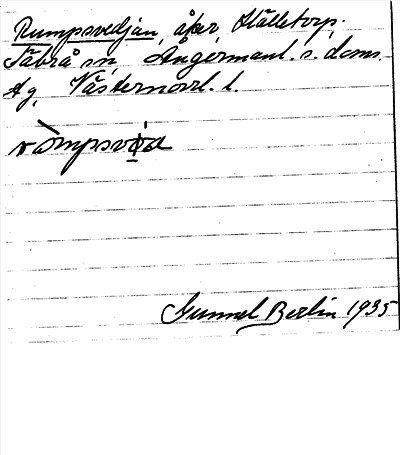 Rumpsvedjan, åker, Hälletorp.
Täbrå sn, Ångermanl. s. doms.
dg, Västernorrl. l.
Gunnel Berlin 1935